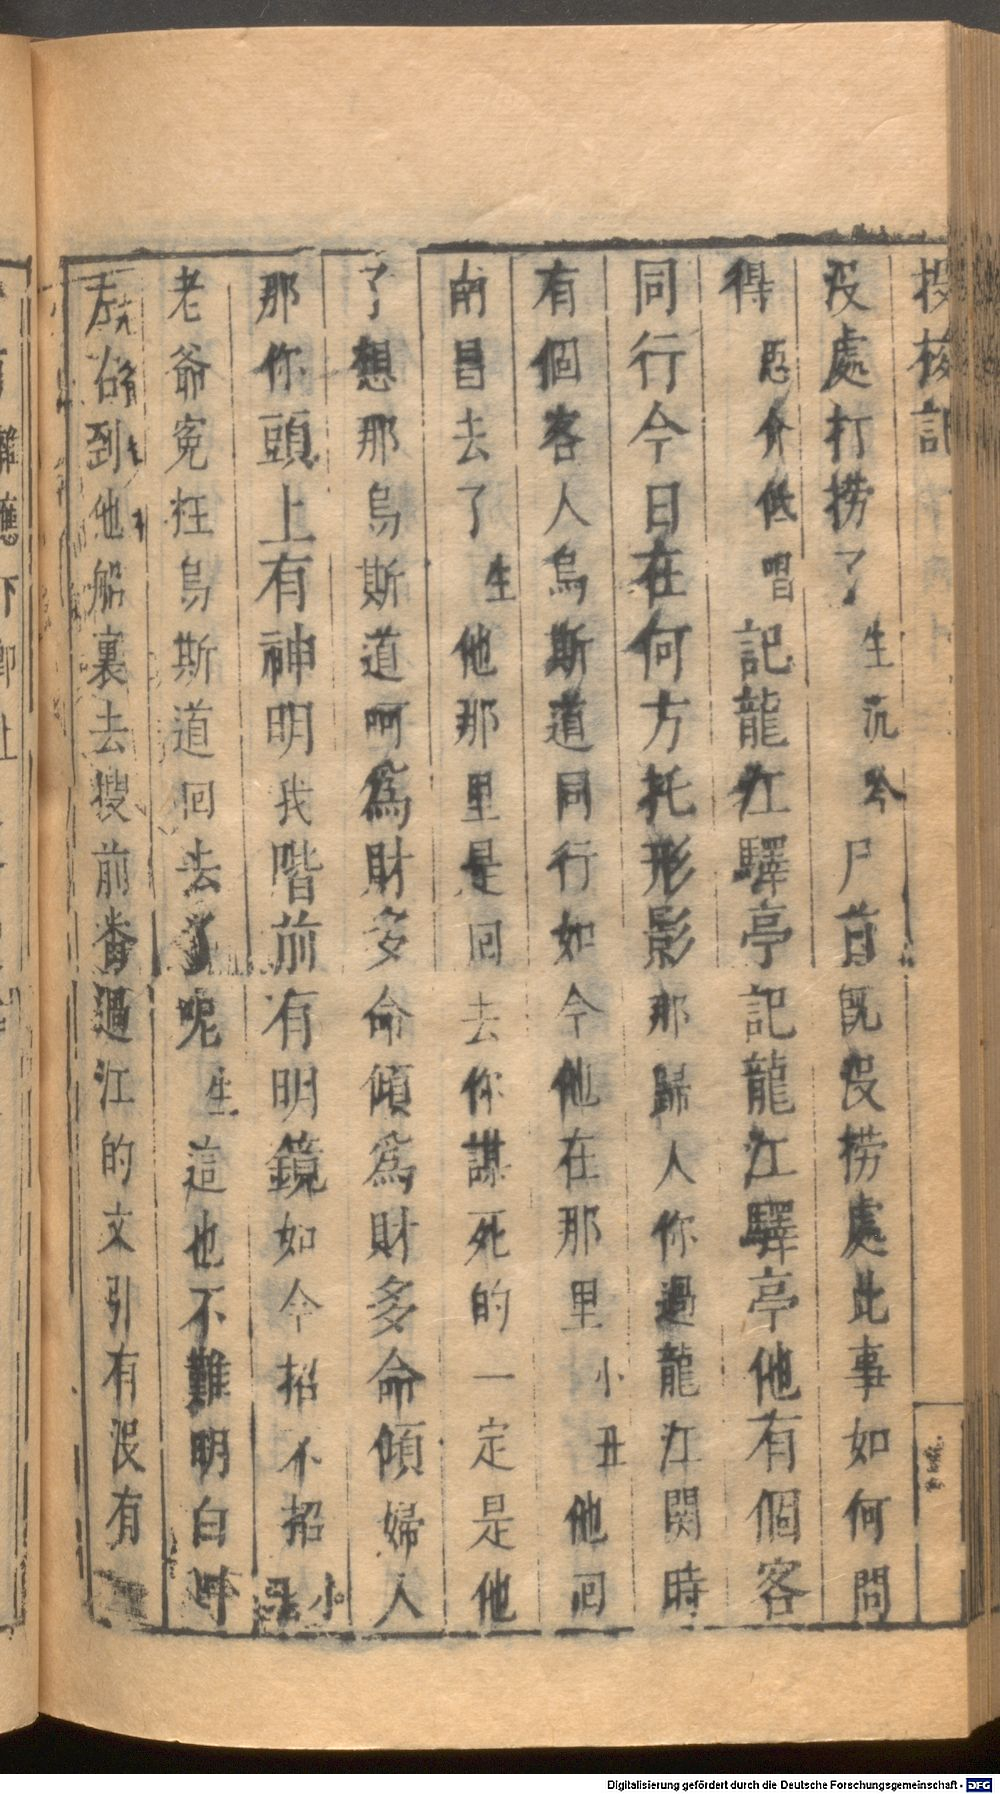 投梭記
沒處打撈了生沉吟尸首旣沒撈處此事如何問
得忍介低唱記龍江驛亭記龍江驛亭他有個客
同行今日在何方托形影那歸人你過龍江関時
有個客人烏斯道同行如今他在那里小丑他回
南昌去了生他那里是回去你謀死的一定是他
了想那烏斯道呵爲財多命傾爲財多命傾婦人
那你頭上有神明我階前有明鏡如今招不招小丑
老爺寃枉烏斯道回去了呢生這也不難明白叫
左右到他船裏去搜前畨過江的文引有沒有
Digitalisierung gefördert durch die Deutsche Forschungsgemeinschaft - DFG